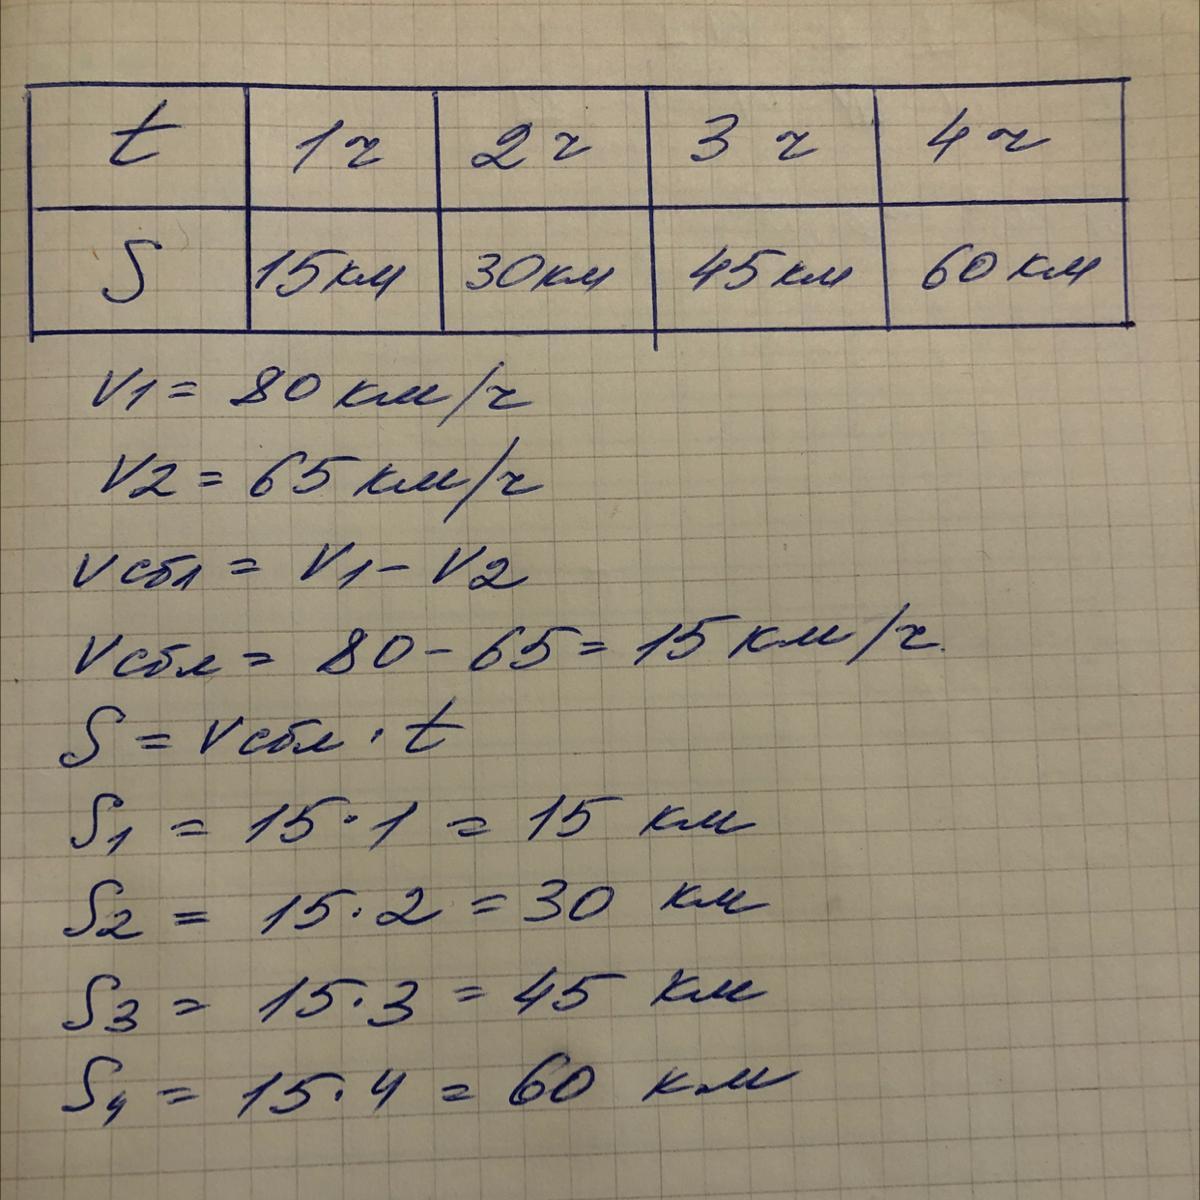 t 1 ч 2 ч 3 ч 4 ч
S 15 км 30 км 45 км 60 км
V1 = 80 км/ч
V2 = 65 км/ч
Vсбл = V1 - V2
Vсбл = 80 - 65 = 15 км/ч.
S = Vсбл · t
S1 = 15 · 1 = 15 км
S2 = 15 · 2 = 30 км
S3 = 15 · 3 = 45 км
S4 = 15 · 4 = 60 км